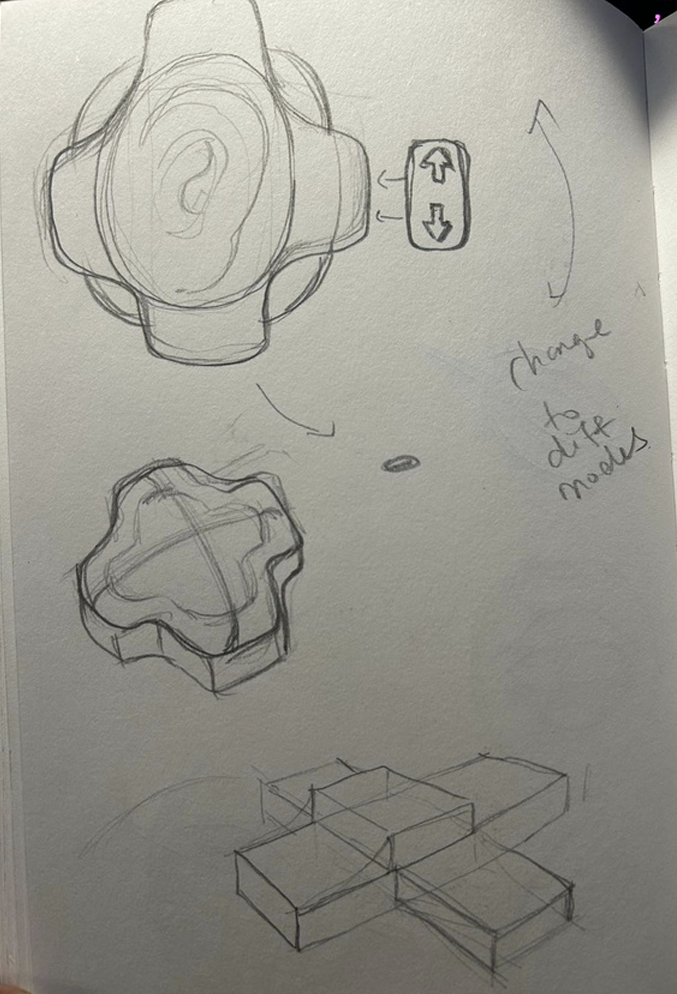 change
to
diff
modes